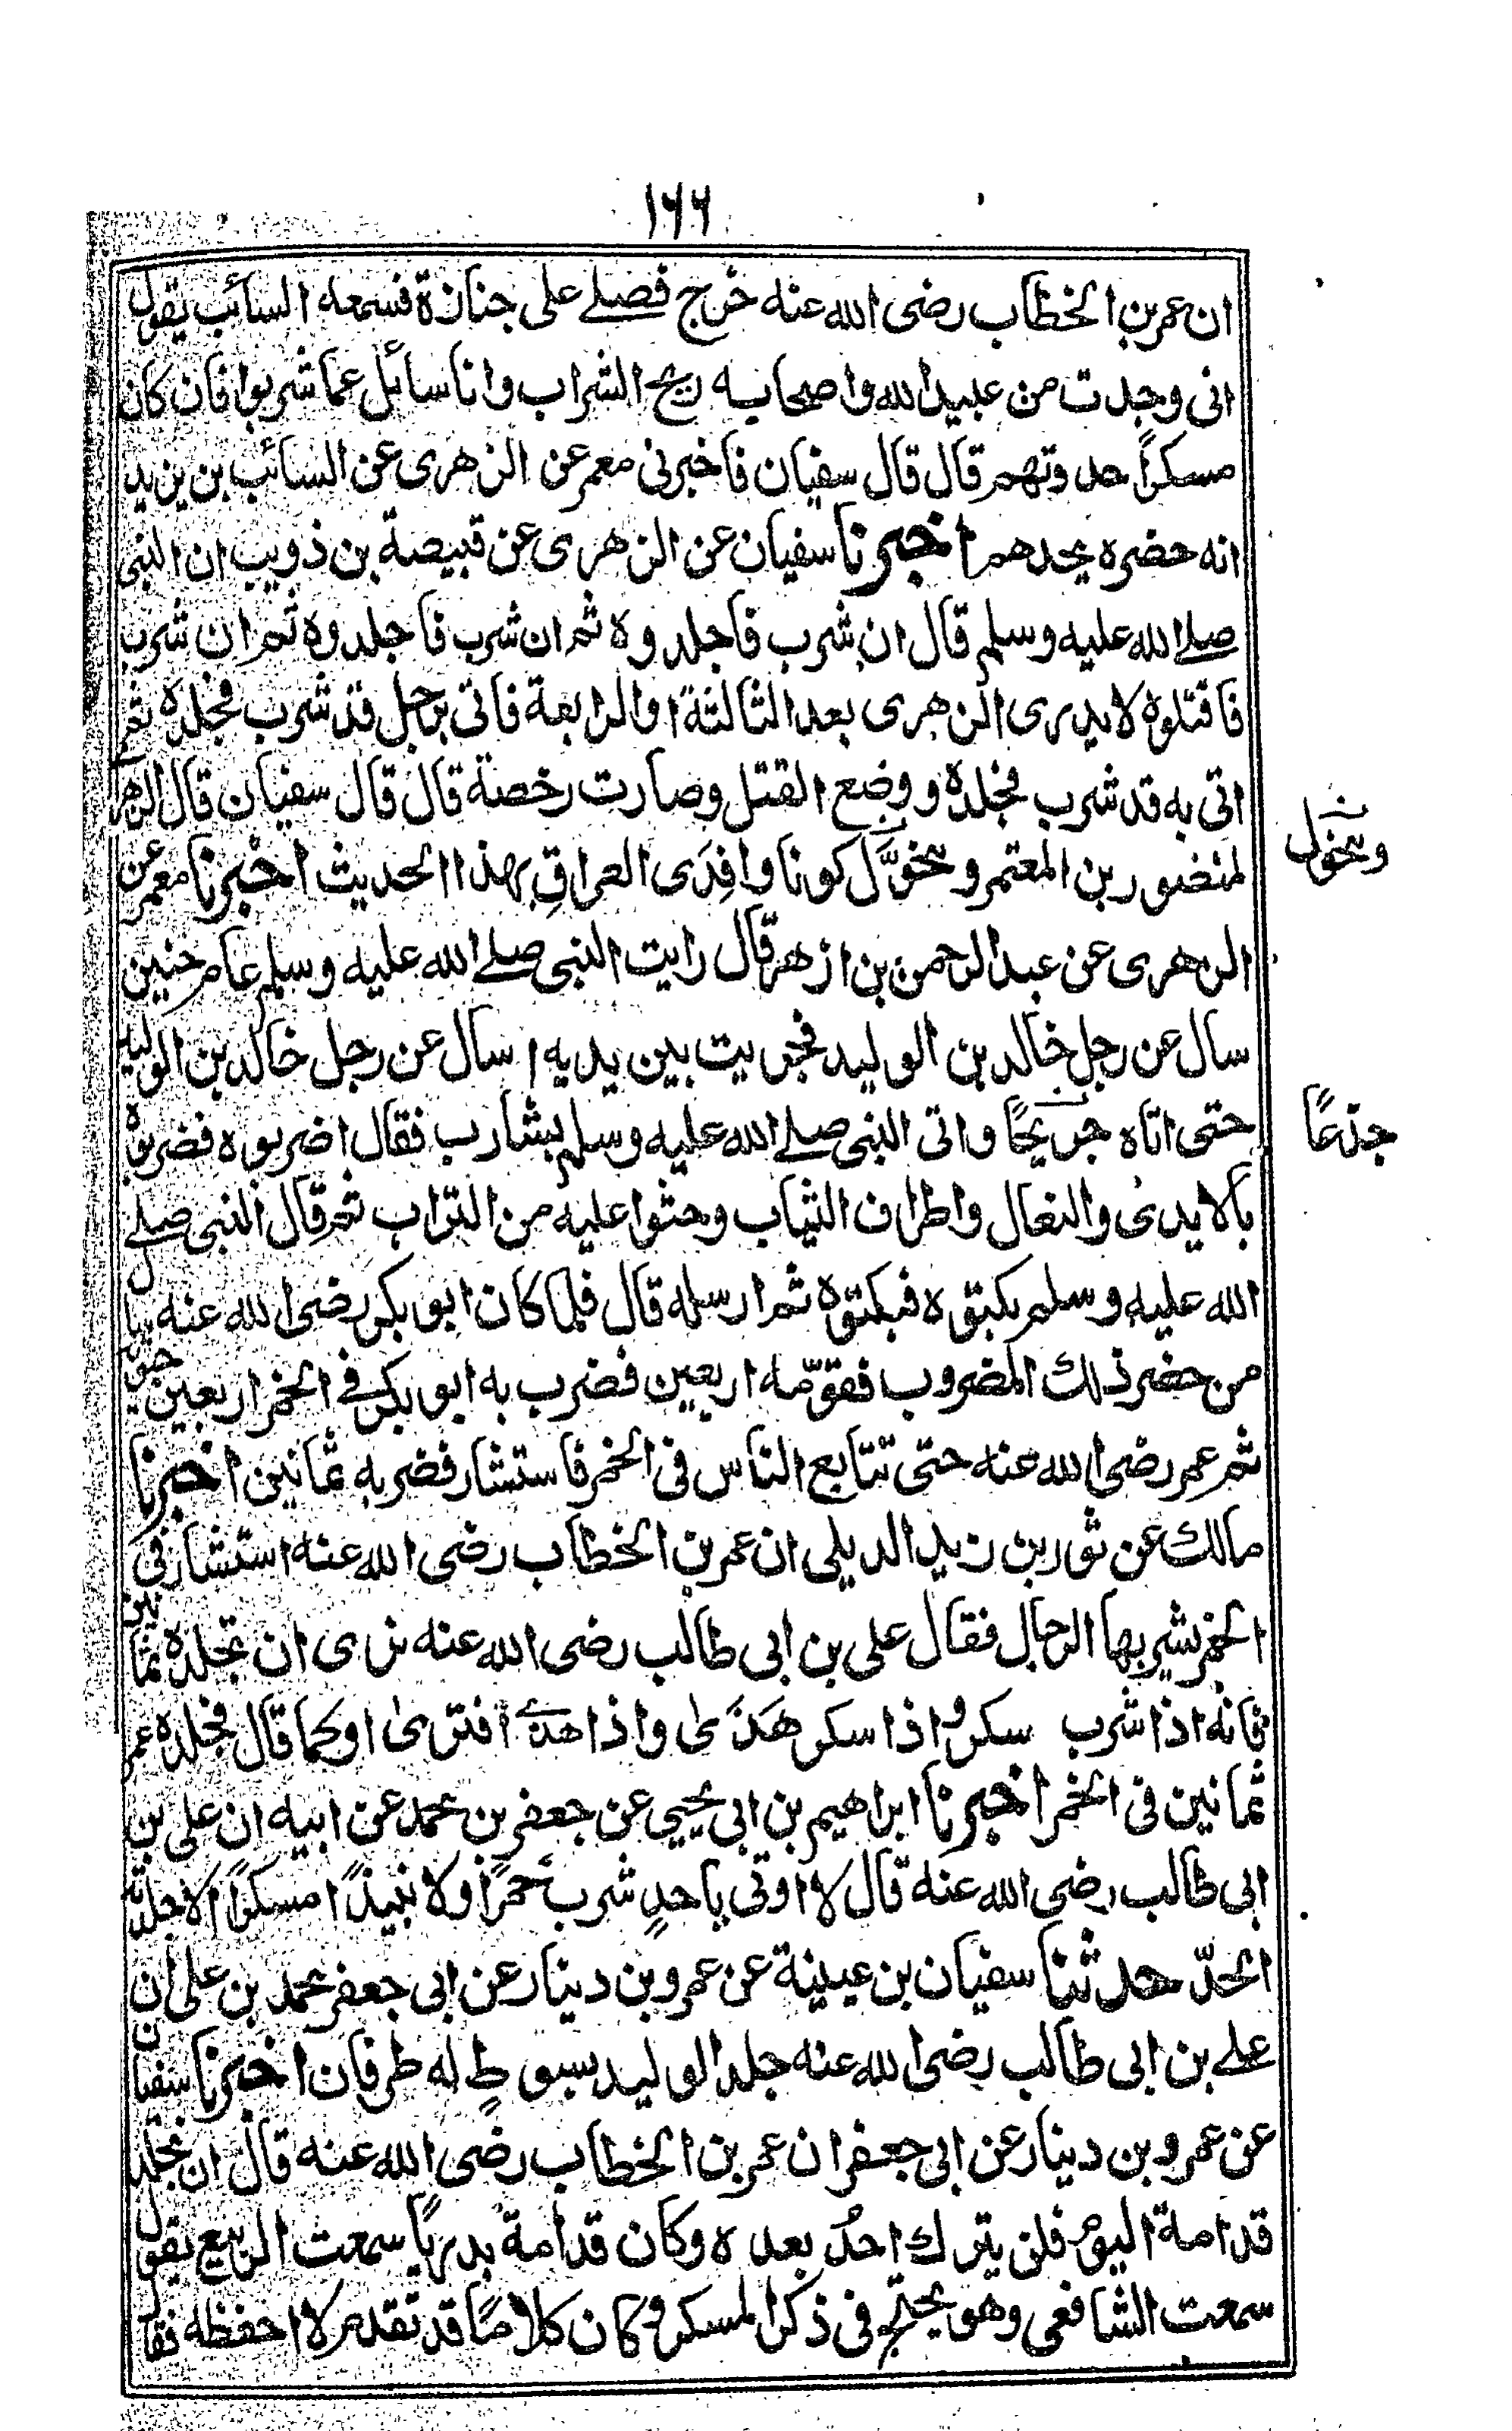 ١٦٦
ان عمر بن الخطاب رضى الله عنه خرج فصلے على جنازة فسمعه السائب يقول
انى وجدت من عبيد الله واصحابه ريح الشراب وانا سائل عما شربوا فان كان
مسكرًا حد وتهم قال قال سفيان فاخبرنى معمر عن الزهرى عن السائب بن يزيد
انه حضره يحدهم اخبرنا سفيان عن الزهرى عن قبيصة بن ذويب ان النبى
صلے الله عليه وسلم قال ان شرب فاجلدوه ثم ان شرب فاجلدوه ثم ان شرب
فاقتلوه لا يدرى الزهرى بعد الثالثة او الرابعة فاتى برجل قد شرب فجلده ثم
اتى به قد شرب فجلده ووضع القتل وصارت رخصة قال قال سفيان قال الزهر
لمنصور بن المعتمر ومخوَّل كونا وافِدَى العراقِ بهذا الحديث اخبرنا معمر عن
ومخول
الزهرى عن عبد الرحمن بن ازهر قال رايت النبى صلے الله عليه وسلم عام حنين
سال عن رجل خالد بن الوليد فجريت بين يديه اسال عن رجل خالد بن الوليد
حتى اتاه جريحًا واتى النبى صلے الله عليه وسلم بشارب فقال اضربوه فضربوه
جذعًا
بالايدى والنعال واطراف الثياب وحثوا عليه من التراب ثم قال النبى صلے
الله عليه وسلم بكتوه فبكتوه ثم ارسله قال فلما كان ابو بكر رضى الله عنه سال
من حضر ذلك المضروب فقوّمه اربعين فضرب به ابو بكر فے الخمر اربعين حيوته
ثم عمر رضى الله عنه حتى تتابع الناس فى الخمر فاستشار فضربه ثمانين اخبرنا
مالك عن ثور بن زيد الديلى ان عمر بن الخطاب رضى الله عنه استشار فى
الخمر يشربها الرجال فقال على بن ابى طالب رضى الله عنه نرى ان تجلده ثمانين
فانه اذا شرب سكر واذا سكر هَذَى واذا هذے افترى او كما قال فجلده عمر
ثمانين فى الخمر اخبرنا ابراهيم بن ابى يحيى عن جعفر بن محمد عن ابيه ان على بن
ابى طالب رضى الله عنه قال لا اوتى باحدٍ شرب خمرًا ولا نبيذًا مسكرًا الا جلدته
الحدّ حدثنا سفيان بن عيينة عن عمرو بن دينار عن ابى جعفر محمد بن على ان
علے بن ابى طالب رضى الله عنه جلد الوليد بسوطٍ له طرفان اخبرنا سفيان
عن عمرو بن دينار عن ابى جعفر ان عمر بن الخطاب رضى الله عنه قال ان تجلد
قدامة اليوم فلن يترك احدٌ بعده وكان قدامة بدريًا سمعت الربيع يقول
سمعت الشافعى وهو يحتج فى ذكر المسكر وكان كلامًا قد تقدم لا احفظه فقال